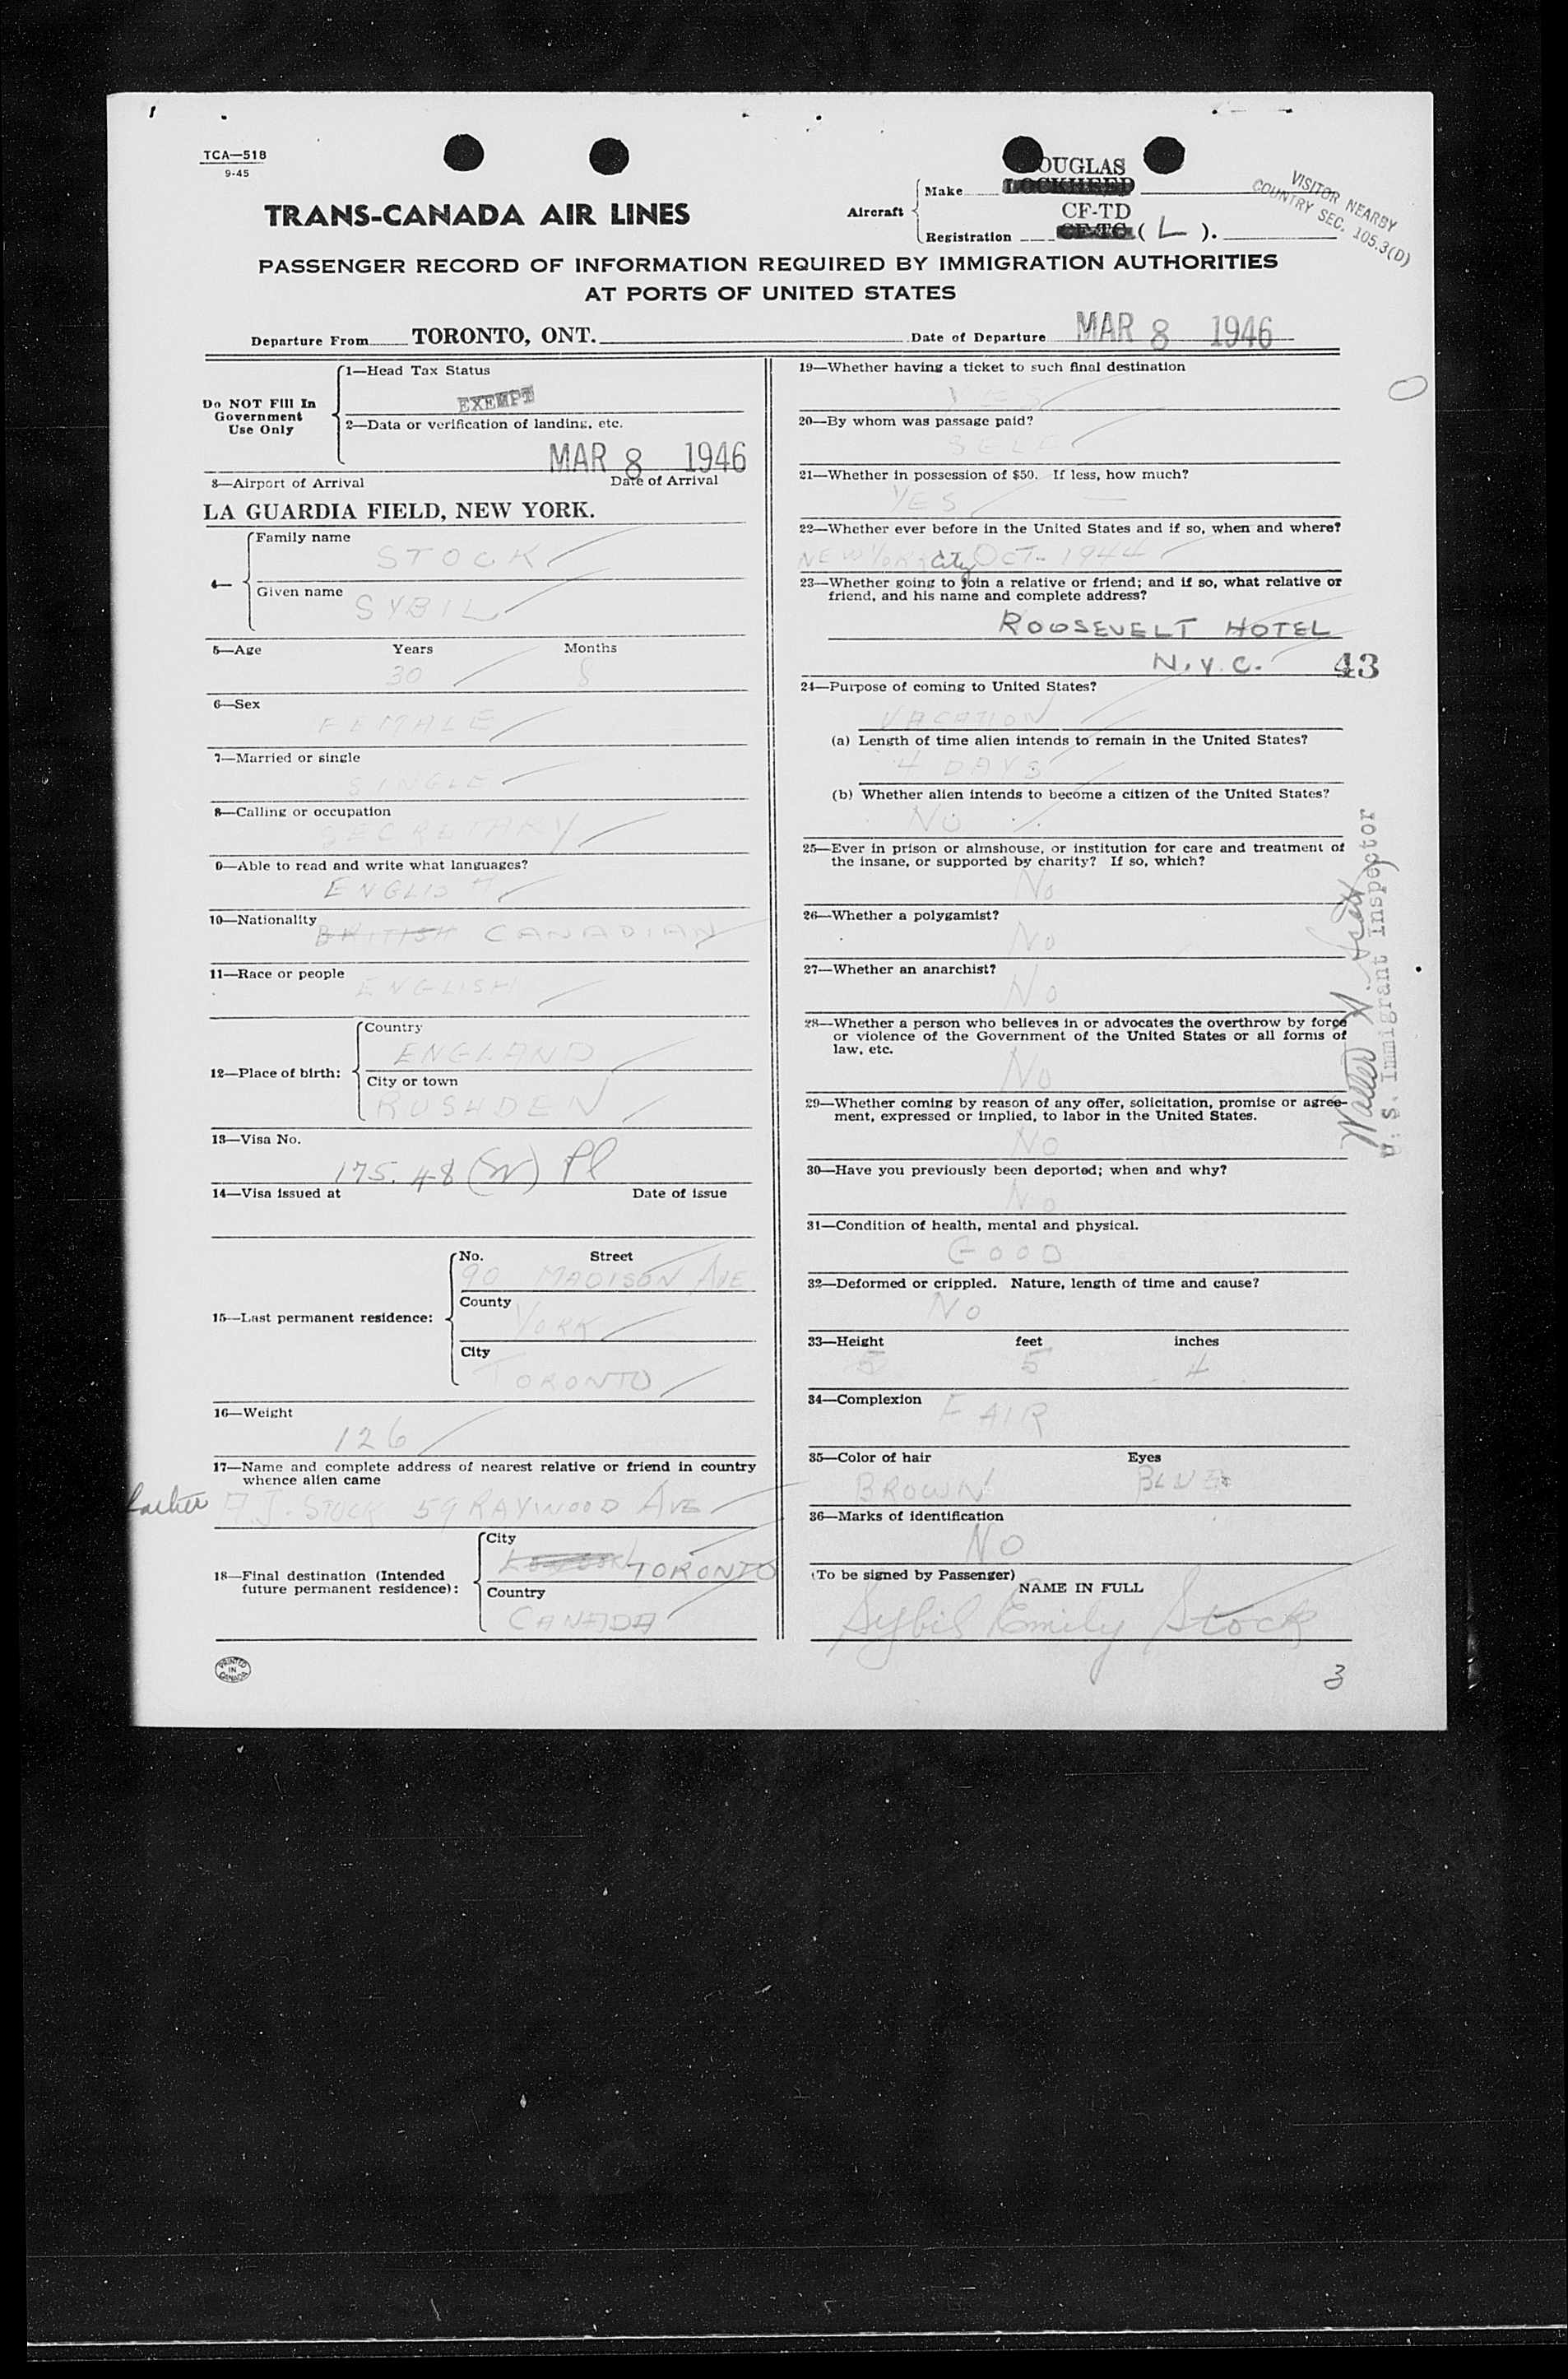 TCA—518
9-45
TRANS-CANADA AIR LINES
Aircraft
Make
DOUGLAS
LOCKHEED
Registration
CF-TD
CF-TC ( L ).
VISITOR NEARBY
COUNTRY SEC. 105.3(D)
PASSENGER RECORD OF INFORMATION REQUIRED BY IMMIGRATION AUTHORITIES
AT PORTS OF UNITED STATES
Departure From TORONTO, ONT. Date of Departure MAR 8 1946
Do NOT Fill In
Government
Use Only
1—Head Tax Status
EXEMPT
2—Data or verification of landing, etc.
MAR 8 1946
3—Airport of Arrival Date of Arrival
LA GUARDIA FIELD, NEW YORK.
4—
Family name
STOCK
Given name
SYBIL
5—Age Years Months
30 8
6—Sex
FEMALE
7—Married or single
SINGLE
8—Calling or occupation
SECRETARY
9—Able to read and write what languages?
ENGLISH
10—Nationality
BRITISH CANADIAN
11—Race or people
ENGLISH
12—Place of birth:
Country
ENGLAND
City or town
RUSHDEN
13—Visa No.
175.48 (W) Pl
14—Visa issued at Date of issue
15—Last permanent residence:
No. Street
90 MADISON AVE
County
YORK
City
TORONTO
16—Weight
126
17—Name and complete address of nearest relative or friend in country
whence alien came
father A J. STOCK 59 RAYWOOD AVE
18—Final destination (Intended
future permanent residence):
City
TORONTO
Country
CANADA
PRINTED
IN
CANADA
19—Whether having a ticket to such final destination
YES
20—By whom was passage paid?
SELF
21—Whether in possession of $50. If less, how much?
YES —
22—Whether ever before in the United States and if so, when and where?
NEW YORK City OCT - 1944
23—Whether going to join a relative or friend; and if so, what relative or
friend, and his name and complete address?
ROOSEVELT HOTEL
N.Y.C. 43
24—Purpose of coming to United States?
VACATION
(a) Length of time alien intends to remain in the United States?
4 DAYS
(b) Whether alien intends to become a citizen of the United States?
NO
25—Ever in prison or almshouse, or institution for care and treatment of
the insane, or supported by charity? If so, which?
No
26—Whether a polygamist?
No
27—Whether an anarchist?
No
28—Whether a person who believes in or advocates the overthrow by force
or violence of the Government of the United States or all forms of
law, etc.
No
29—Whether coming by reason of any offer, solicitation, promise or agree-
ment, expressed or implied, to labor in the United States.
No
30—Have you previously been deported; when and why?
No
31—Condition of health, mental and physical.
GOOD
32—Deformed or crippled. Nature, length of time and cause?
No
33—Height feet inches
5 5 4
34—Complexion
FAIR
35—Color of hair Eyes
BROWN BLUE
36—Marks of identification
NO
(To be signed by Passenger)
NAME IN FULL
Sybil Emily Stock
3
Walter W.
U. S. Immigrant Inspector